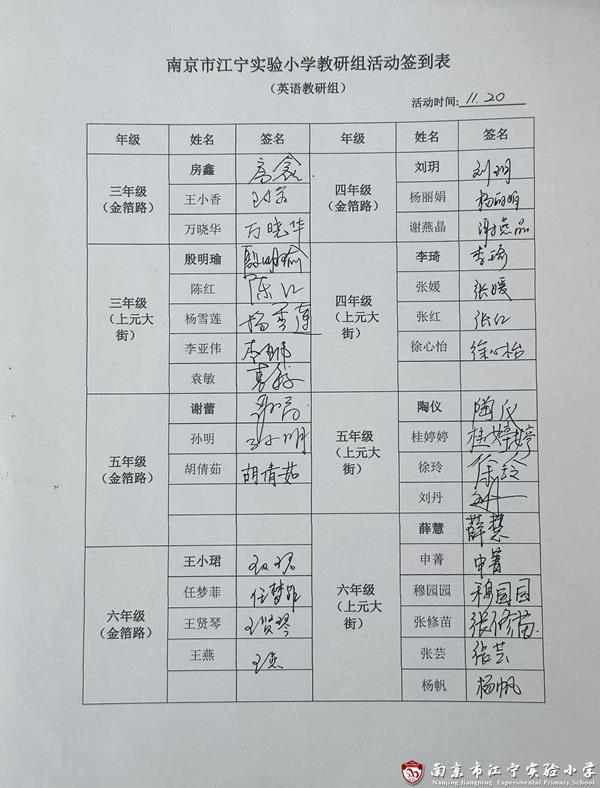 南京市江宁实验小学教研组活动签到表
（英语教研组）
活动时间: 11.20
年级 姓名 签名 年级 姓名 签名
三年级（金箔路） 房鑫 房鑫 四年级（金箔路） 刘玥 刘玥
王小香 杨丽娟 杨丽娟
万晓华 万晓华 谢燕晶 谢燕晶
三年级（上元大街） 殷明瑜 殷明瑜 四年级（上元大街） 李琦 李琦
陈红 陈红 张媛 张媛
杨雪莲 杨雪莲 张红 张红
李亚伟 李亚伟 徐心怡 徐心怡
袁敏 袁敏
五年级（金箔路） 谢蕾 谢蕾 五年级（上元大街） 陶仪 陶仪
孙明 孙明 桂婷婷 桂婷婷
胡倩茹 胡倩茹 徐玲 徐玲
刘丹 刘丹
六年级（上元大街） 薛慧 薛慧
六年级（金箔路） 王小珺 王小珺 申菁 申菁
任梦菲 任梦菲 穆园园 穆园园
王贤琴 王贤琴 张修苗 张修苗
王燕 王燕 张芸 张芸
杨帆 杨帆
南京市江宁实验小学
Nanjing Jiangning Experimental Primary School